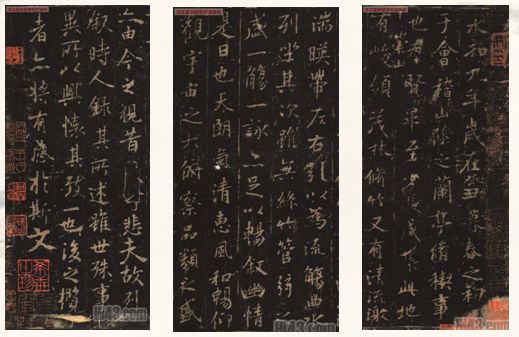 永和九年歲在癸丑暮春之初
于會稽山陰之蘭亭脩稧事
也羣賢畢至少長咸集此地
有崇山峻領茂林脩竹又有清流激
湍暎帶左右引以為流觴曲水
列坐其次雖無絲竹管弦之
盛一觴一詠亦足以暢敘幽情
是日也天朗氣清惠風和暢仰
觀宇宙之大俯察品類之盛
亦由今之視昔悲夫故列
敘時人錄其所述雖世殊事
異所以興懷其致一也後之攬
者亦將有感於斯文